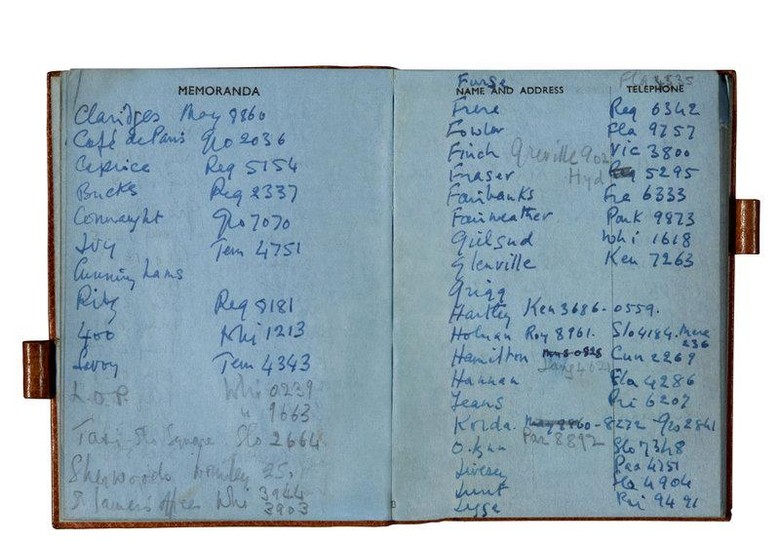 MEMORANDA
Claridges May 8860
Café de Paris Gro 2036
Caprice Reg 5154
Bucks Reg 2337
Connaught Gro 7070
Ivy Tem 4751
Cunninghams
Ritz Reg 8181
400 Whi 1213
Savoy Tem 4343
Whi 0239
" 9663
Taxi Slo Square Slo 2664
Sherwoods 25.
St James's offices Whi 3944
3903
Furse
NAME AND ADDRESS TELEPHONE
Frere Reg 6342
Fowler Fla 9757
Finch Greville Vic 3800
Fraser Hyd 5295
Fairbanks Fre 6333
Fairweather Park 9823
Gielgud Whi 1618
Glenville Ken 7263
Grigg
Hartley Ken 3686 - 0559.
Holman Roy 8961. Slo 4184.
236
Hamilton Cun 2269
Hannan Fla 4286
Jeans Pri 6207
Korda 8272 - Gro 2841
Par 8892
Slo 7348
4751
Lunt Sla 4904
Legge Pri 9491